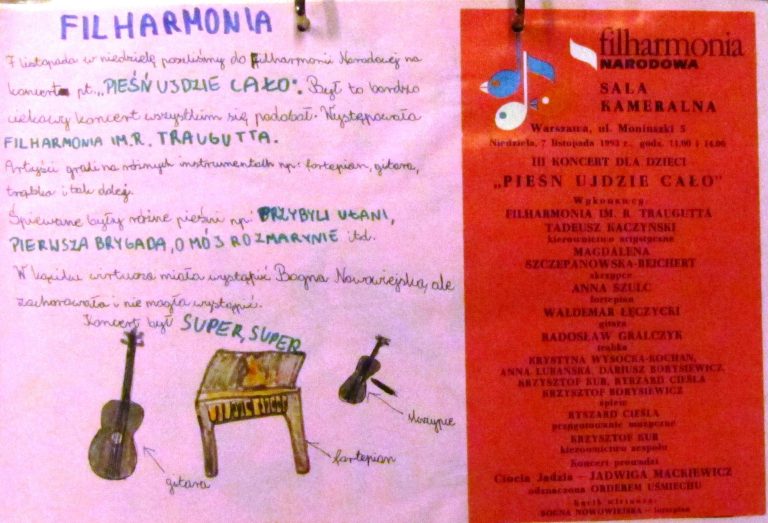 FILHARMONIA
7 listopada w niedzielę poszliśmy do Filharmonii Narodowej na
koncert pt. „PIEŚŃ UJDZIE CAŁO". Był to bardzo
ciekawy koncert wszystkim się podobał. Występowała
FILHARMONIA IM. R. TRAUGUTTA.
Artyści grali na różnych instrumentach np: fortepian, gitara,
trąbka i tak dalej.
Śpiewane były różne pieśni np: PRZYBYLI UŁANI,
PIERWSZA BRYGADA, O MÓJ ROZMARYNIE itd.
W kąciku wirtuoza miała wystąpić Bogna Nowowiejska, ale
zachorowała i nie mogła wystąpić.
Koncert był SUPER, SUPER
gitara
fortepian
skrzypce
filharmonia
NARODOWA
SALA
KAMERALNA
Warszawa, ul. Moniuszki 5
Niedziela, 7 listopada 1993 r., godz. 11.00 i 14.00
III KONCERT DLA DZIECI
„PIEŚN UJDZIE CAŁO"
Wykonawcy:
FILHARMONIA IM. R. TRAUGUTTA
TADEUSZ KACZYŃSKI
kierownictwo artystyczne
MAGDALENA
SZCZEPANOWSKA-REICHERT
skrzypce
ANNA SZULC
fortepian
WALDEMAR ŁĘCZYCKI
gitara
RADOSŁAW GRALCZYK
trąbka
KRYSTYNA WYSOCKA-KOCHAN,
ANNA LUBAŃSKA, DARIUSZ BORYSIEWICZ,
KRZYSZTOF KUR, RYSZARD CIEŚLA
KRZYSZTOF BORYSIEWICZ
śpiew
RYSZARD CIEŚLA
przygotowanie muzyczne
KRZYSZTOF KUR
kierownictwo zespołu
Koncert prowadzi
Ciocia Jadzia – JADWIGA MACKIEWICZ
odznaczona ORDEREM UŚMIECHU
Kącik wirtuoza:
BOGNA NOWOWIEJSKA – fortepian